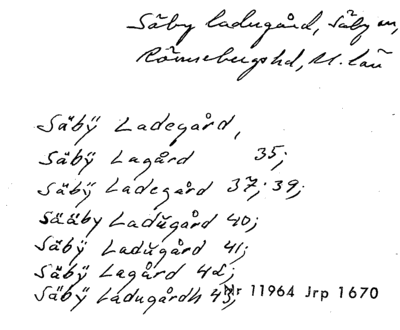 Säby ladugård, Säby sn,
Rönnebergs hd, M. län
Säbÿ Ladegård,
Säbÿ Lagård 35;
Säbÿ Ladegård 37; 39;
Sääby Ladŭgård 40;
Säbÿ Ladŭgård 41;
Säbÿ Lagård 42;
Säbÿ Ladugårdh 43;
Nr 11964 Jrp 1670